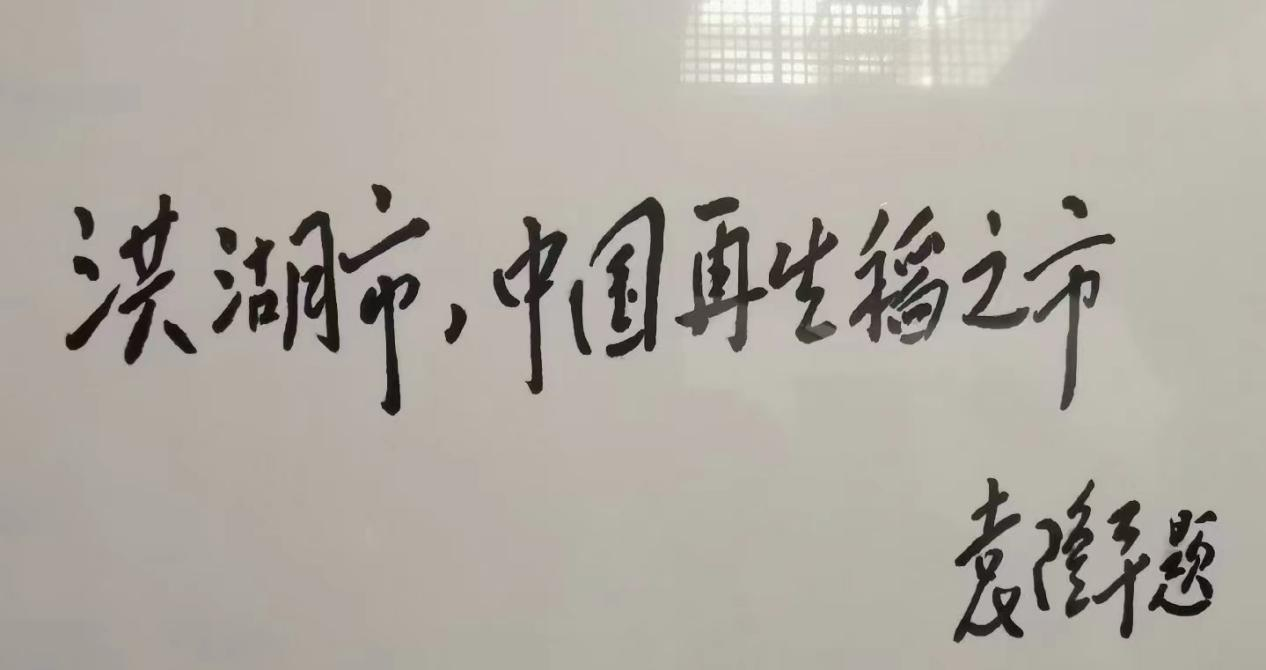 洪湖市，中国再生稻之市
袁隆平题